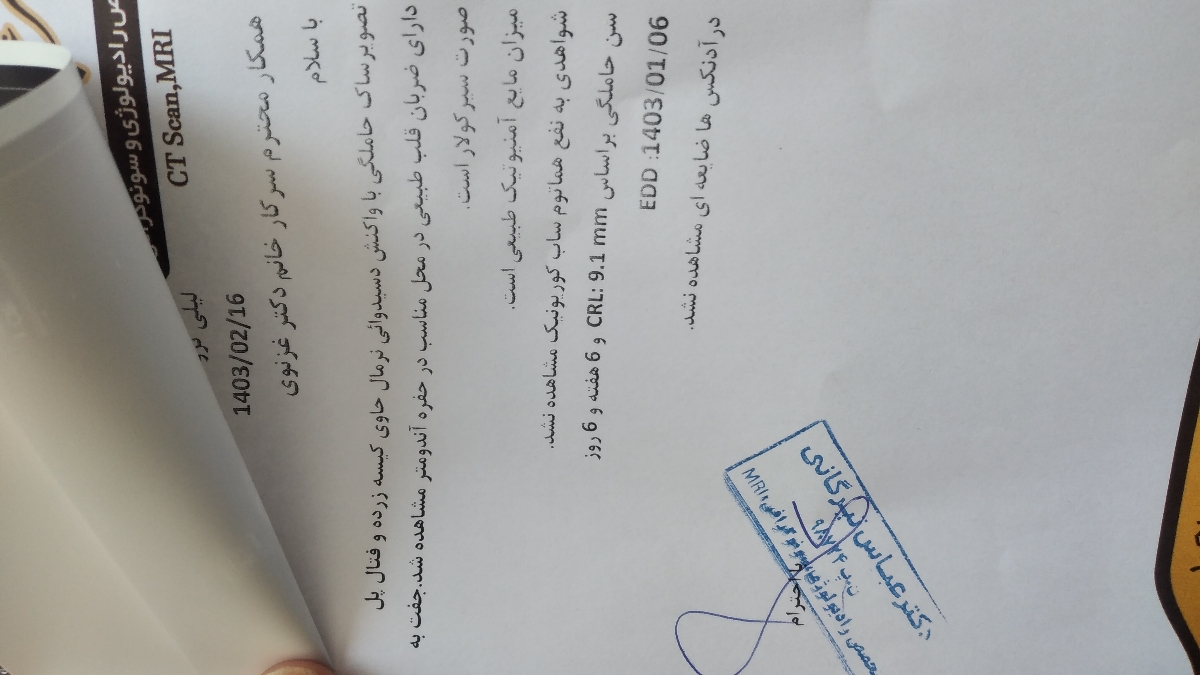 CT Scan,MRI
1403/02/16
همکار محترم سرکار خانم دکتر غزنوی
با سلام
تصویر ساک حاملگی با واکنش دسیدوائی نرمال حاوی کیسه زرده و فتال پل
دارای ضربان قلب طبیعی در محل مناسب در حفره آندومتر مشاهده شد.جفت به
صورت سیرکولار است.
میزان مایع آمنیوتیک طبیعی است.
شواهدی به نفع هماتوم ساب کوریونیک مشاهده نشد.
سن حاملگی براساس CRL: 9.1 mm و 6 هفته و 6 روز
EDD :1403/01/06
در آدنکس ها ضایعه ای مشاهده نشد.
با احترام
دکتر عباس
MRI